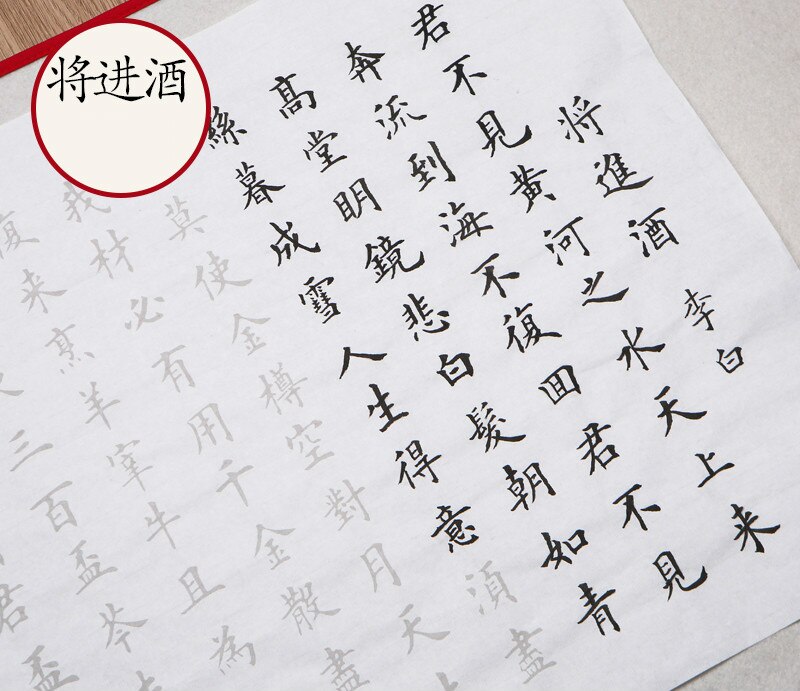 将进酒
将進酒 李白
君不見黄河之水天上来
奔流到海不復回君不見
高堂明鏡悲白髮朝如青
絲暮成雪人生得意須盡
莫使金樽空對月天
我材必有用千金散盡
復来烹羊宰牛且為
三百盃岑
君盃